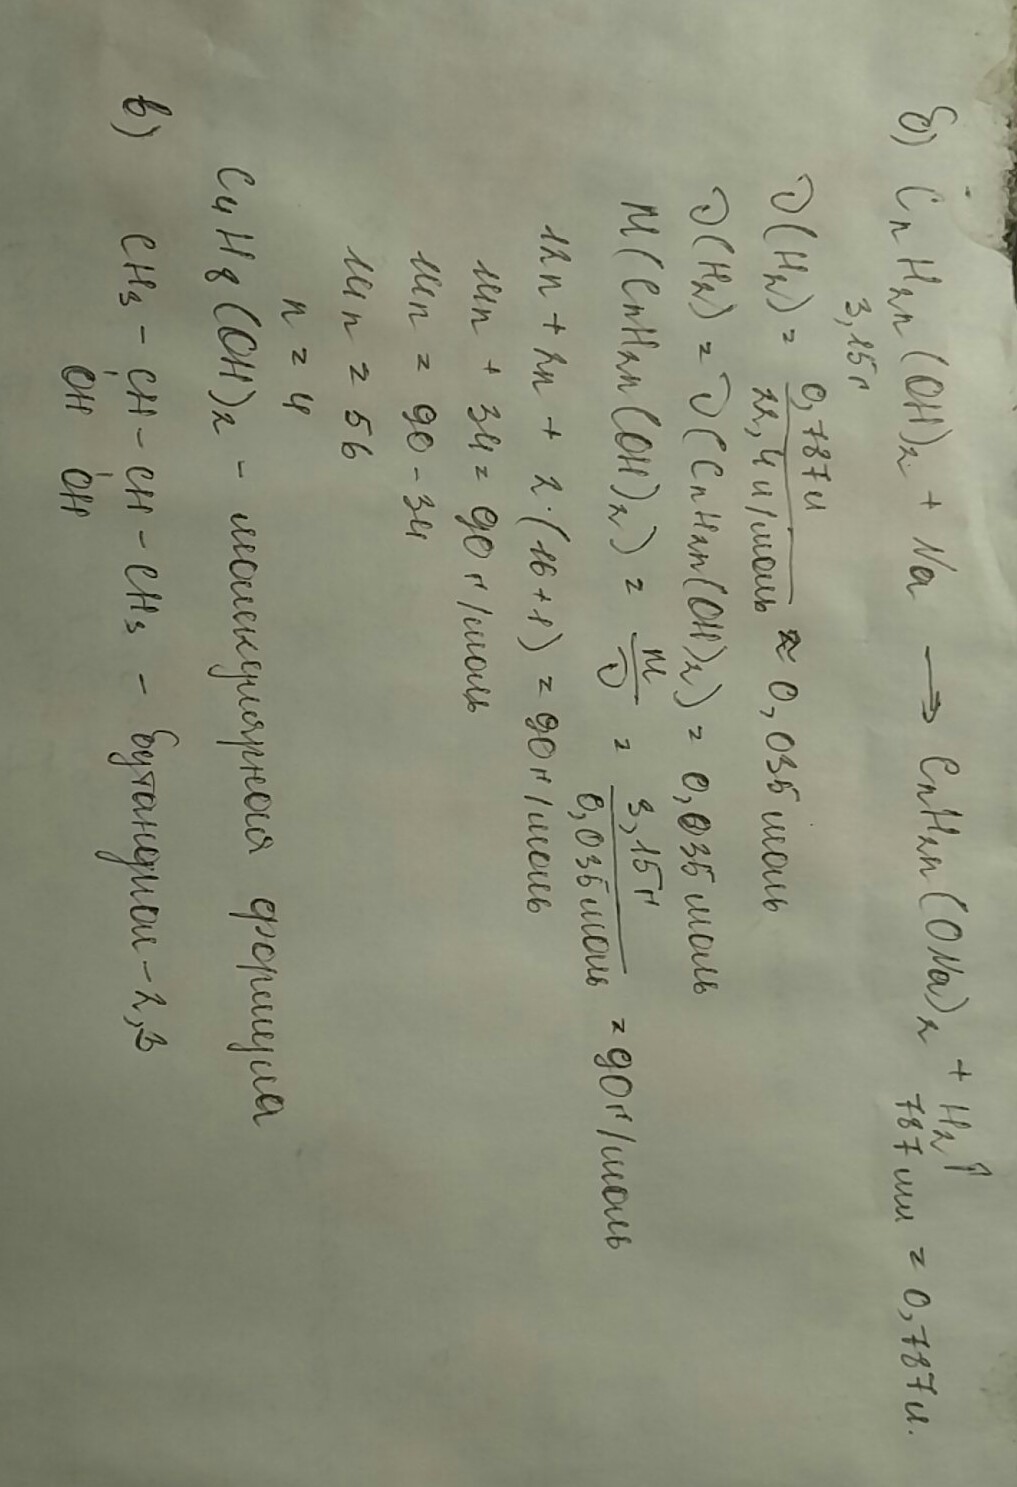 б) CnH2n(OH)2 + Na ⟶ CnH2n(ONa)2 + H2↑
3,15г 787мл = 0,787л.
ν(H2) = 0,787л / 22,4л/моль ≈ 0,035моль
ν(H2) = ν(CnH2n(OH)2) = 0,035моль
M(CnH2n(OH)2) = m/ν = 3,15г / 0,035моль = 90г/моль
12n + 2n + 2·(16+1) = 90г/моль
14n + 34 = 90г/моль
14n = 90 - 34
14n = 56
n = 4
C4H8(OH)2 - молекулярная формула
в) CH3 - CH - CH - CH3 - бутандиол-2,3
OH OH